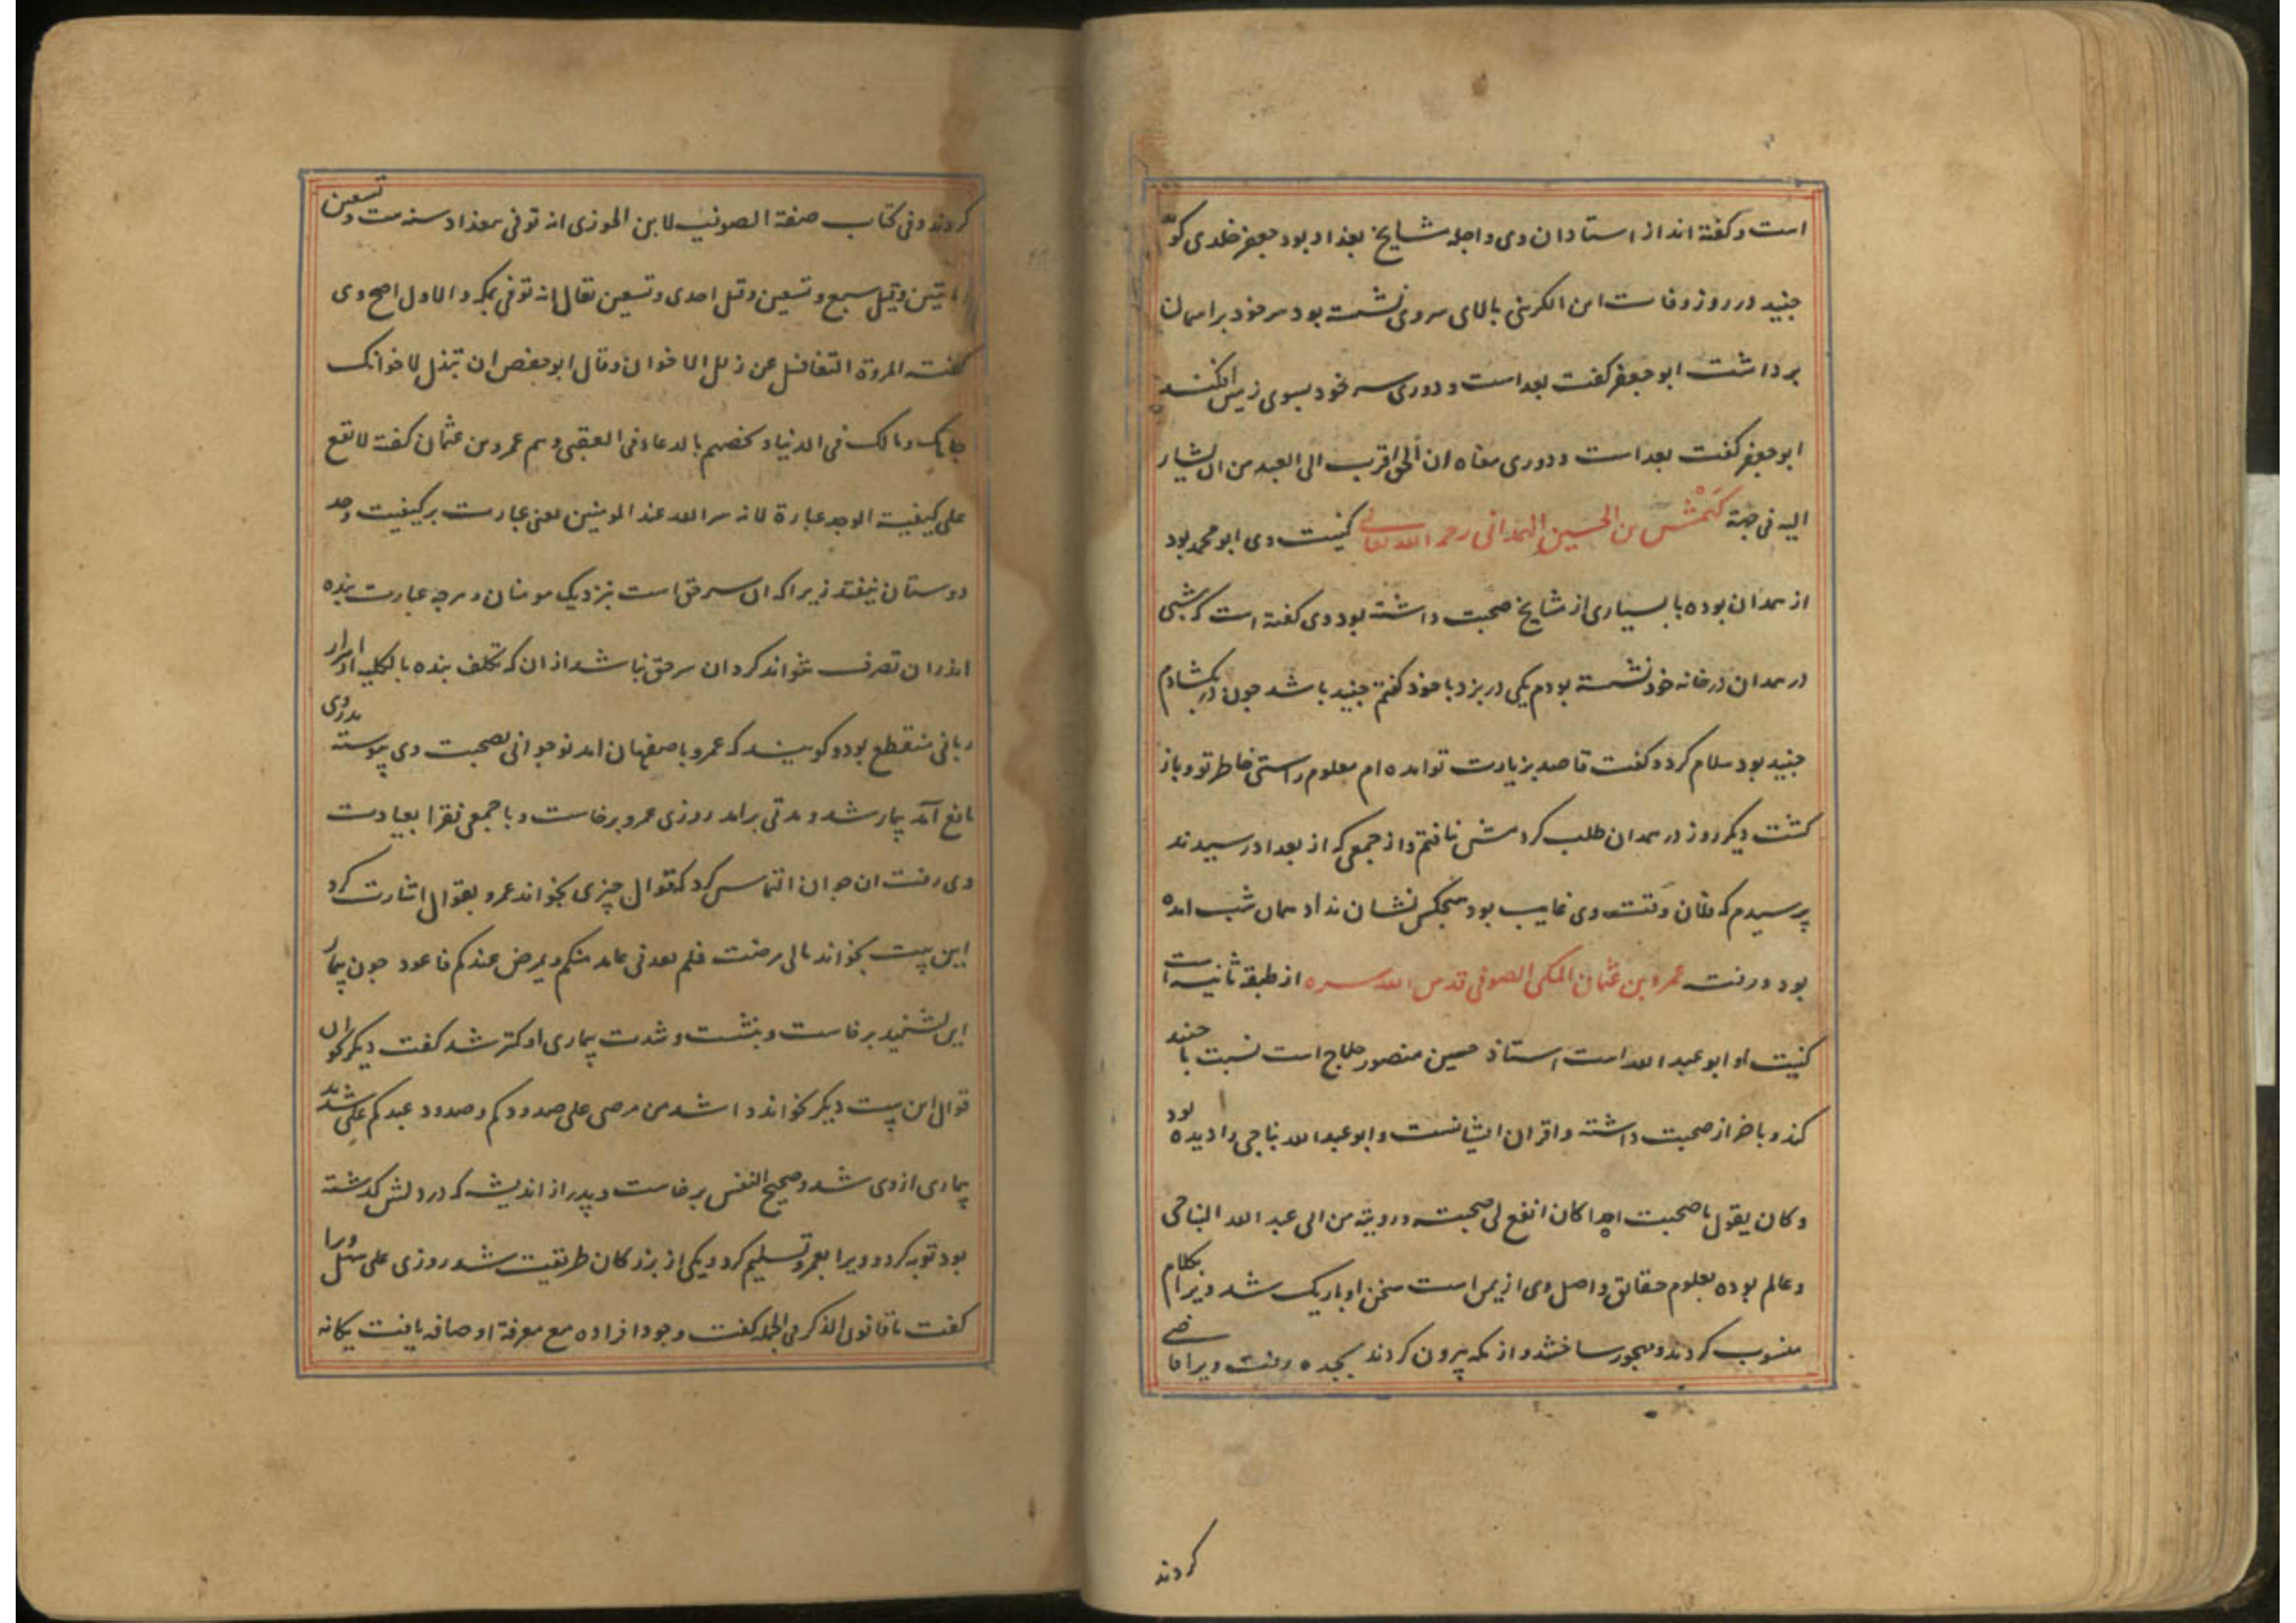 است و کفته اند از استادان وی و اجله مشایخ بغداد بود جعفر خلدی کوید
جنید در روز وفات ابن الکرنبی بالای سر وی نشسته بود سر خود بر اسمان
برداشت ابو جعفر کفت بعد است و دوری سر خود بسوی زمین افکند
ابو جعفر کفت بعد است و دوری معناه ان الحق اقرب الی العبد من ان یشار
الیه فی جهة کهمش بن الحسین الهمدانی رحمه الله تعالی کنیت وی ابو محمد بود
از همدان بوده با بسیاری از مشایخ صحبت داشته بود وی کفته است که شبی
در همدان در خانه خود نشسته بودم یکی در بزد با خود کفتم جنید باشد جون در بکشادم
جنید بود سلام کرد و کفت قاصد بزیارت تو امده ام معلوم راستی خاطر تو و باز
کشت دیکر روز در همدان طلب کردمش نیافتم و از جمعی که از بغداد رسیدند
پرسیدم که فلان وقت وی غایب بود هیجکس نشان نداد همان شب امده
بود و رفت عمرو بن عثمان المکی الصوفی قدس الله سره از طبقه ثانیه است
کنیت او ابو عبد الله است استاذ حسین منصور حلاج است نسبت با جنید
کند و با خراز صحبت داشته و اقران ایشانست و ابو عبد الله نباجی را دیده بود
و کان یقول ما صحبت احدا کان انفع لی صحبته و رویته من ابی عبد الله النباجی
و عالم بوده بعلوم حقائق و اصل وی از یمن است سخن او باریک شد ویرا بکلام
منسوب کردند و مهجور ساختند و از مکه بیرون کردند بجده رفت ویرا قاضی
کردند
کردند و فی کتاب صفة الصوفیه لابن الجوزی انه توفی ببغداد سنه ست و تسعین
و مایتین و قیل سبع و تسعین و قیل احدی و تسعین یقال انه توفی بمکه و الاول اصح وی
کفته المروة التغافل عن زلل الاخوان و قال ابو حفص ان تبذل لاخوانک
جاهک و مالک فی الدنیا و تخصهم بالدعا و فی العقبی و هم عمرو بن عثمان کفته لا تقع
علی کیفیة الوجد عبارة لانه سر الله عند المومنین یعنی عبارت بر کیفیت وجد
دوستان نیفتد زیرا که ان سر حق است بنزدیک مومنان و هرجه عبارت بنده
اندر ان تصرف تواند کرد ان سر حق نباشد از ان که تکلف بنده بالکلیه از اسرار
ربانی منقطع بود و کویند که عمرو باصفهان امد نوجوانی بصحبت وی پیوسته پدر وی
مانع آمد بیمار شد و مدتی برامد روزی عمرو برخاست و با جمعی فقرا بعیادت
وی رفت ان جوان التماس کرد که قوال چیزی بخواند عمرو بقوال اشارت کرد
این بیت بخواند مالی مرضت فلم یعدنی عاید منکم و یمرض عبدکم فاعود جون بیمار
این بشنید برخاست و بنشست و شدت بیماری او کمتر شد کفت دیکر بکو ان
قوال این بیت دیکر بخواند و اشد من مرضی علی صدودکم و صدود عبدکم علی شدید
بیماری از وی شد و صحیح النفس برخاست و پدر از اندیشه که در دلش کذشته
بود توبه کرد و ویرا بعمرو تسلیم کرد و یکی از بزرکان طریقت شد روزی علی سهل ویرا
کفت ما قانون الذکر فی الجمله کفت وجود افراده مع معرفة اوصافه یافت یکانه